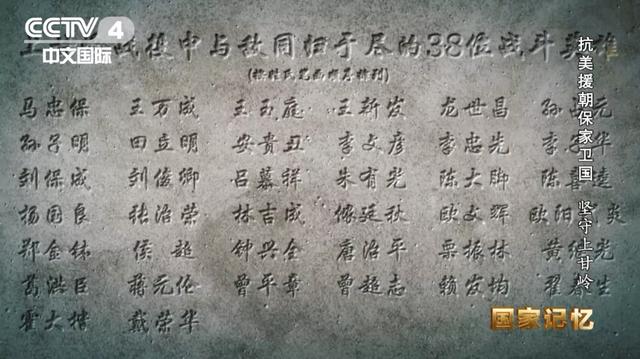 CCTV 4
中文国际
战役中与敌同归于尽的38位战斗英雄
(按姓氏笔画顺序排列)
马忠保 王万成 王玉庭 王新发 龙世昌 孙 元
孙子明 田立明 安贵丑 李文彦 李忠先 李 华
刘保成 刘俊卿 吕慕祥 朱有光 陈大脚 陈 远
杨国良 张治荣 林吉成 廷秋 欧文辉 欧阳 炎
郑金钵 侯超 钟兴全 唐治平 栗振林 黄继光
葛洪臣 蒋元伦 曾平章 曾超志 赖发均 翟春生
霍大楷 戴荣华
抗美援朝保家卫国 坚守上甘岭
国家记忆